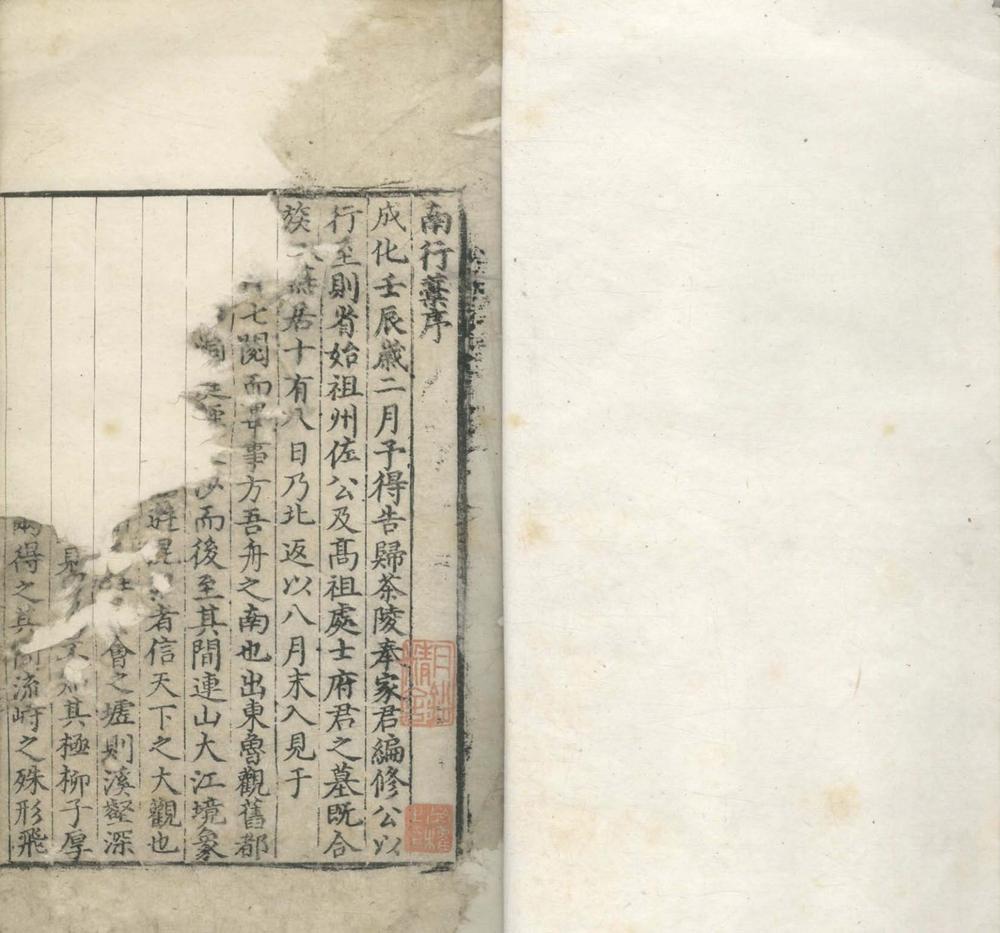 南行藁序
成化壬辰歲二月予得告歸茶陵奉家君編修公以
行至則省始祖州佐公及髙祖處士府君之墓既合
族 居十有八日乃北返以八月末入見于
七閱而畢事方吾舟之南也出東魯觀舊都
而後至其間連山大江境象
者信天下之大觀也
會之墟則溪壑深
見 其極柳子厚
得之其 流峙之殊形飛